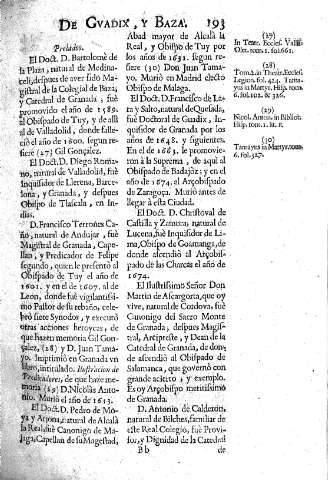 DE GVADIX, Y BAZA. 193
Prelados.
El Doct. D. Bartolomè de
la Plaza, natural de Medina-
celi, despues de aver sido Ma-
gistral de la Colegial de Baza,
y Catedral de Granada, fuè
promovido el año de 1589.
al Obispado de Tuy, y de alli
al de Valladolid, donde falle-
ciò el año de 1600. segun re-
fiere (27) Gil Gonçalez.
El Doct. D. Diego Roma-
no, natural de Valladolid, fuè
Inquisidor de Llerena, Barce-
lona, y Granada, y despues
Obispo de Tlascala, en In-
dias.
D. Francisco Terrones Ca-
ño, natural de Andujar, fuè
Magistral de Granada, Cape-
llan, y Predicador de Felipe
segundo, quien le presentò al
Obispado de Tuy el año de
1601. y en el de 1607. al de
Leon, donde fuè vigilantissi-
mo Pastor de su rebaño, cele-
brò siete Synodos, y executò
otras acciones heroycas, de
que hazen memoria Gil Gon-
çalez, (28) y D. Juan Tama-
yo. Imprimiò en Granada vn
libro, intitulado. Instruccion de
Predicadores, de que haze me-
moria (29) D. Nicolàs Anto-
nio. Muriò el año de 1613.
El Doct. D. Pedro de Mo-
ya y Arjona, natural de Alcalà
la Real, fuè Canonigo de Ma-
laga, Capellan de su Magestad,
Abad mayor de Alcalà la
Real, y Obispo de Tuy por
los años de 1631. segun re-
fiere (30) Don Juan Tama-
yo. Muriò en Madrid electo
Obispo de Malaga.
El Doct. D. Francisco de Le-
ra y Salto, natural de Quesada,
fuè Doctoral de Guadix, In-
quisidor de Granada por los
años de 1648. y siguientes.
En el de 1663. le promovie-
ron à la Suprema, de aqui al
Obispado de Badajòz: y en el
año de 1674. al Arçobispado
de Zaragoza. Muriò antes de
llegar à esta Ciudad.
El Doct. D. Christoval de
Castilla y Zamora, natural de
Lucena, fuè Inquisidor de Li-
ma, Obispo de Guamanga, de
donde ascendiò al Arçobis-
pado de las Charcas el año de
1674.
El Ilustrissimo Señor Don
Martin de Ascargorta, que oy
vive, natural de Cordova, fuè
Canonigo del Sacro Monte
de Granada, despues Magis-
tral, Arcipreste, y Dean de la
Catedral de Granada, de don-
de ascendiò al Obispado de
Salamanca, que governò con
grande acierto, y exemplo.
Es oy Arçobispo meritissimo
de Granada.
D. Antonio de Calderòn,
natural de Bilches, familiar de
este Real Colegio, fuè Provi-
sor, y Dignidad de la Catedral
Bb de
(27)
In Teatr. Eccles. Vallis.
(28)
(29)
Nicol. Anton. in Biblioth.
Hisp. tom. 1. lit. F.
(30)
Tamayus in Martyr. tom.
6. fol. 327.